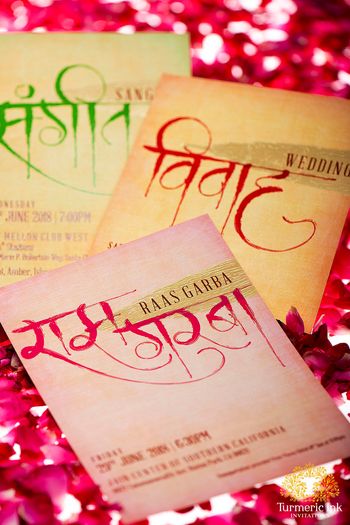 संगीत
SANG
DNESDAY
JUNE 2018 | 7:00PM
MELLON CLUB WEST
विवाह
WEDDING
रास गरबा
RAAS GARBA
FRIDAY
29TH JUNE 2018 | 6:30PM
JAIN CENTER OF SOUTHERN CALIFORNIA
Turmeric Ink
INVITATIONS